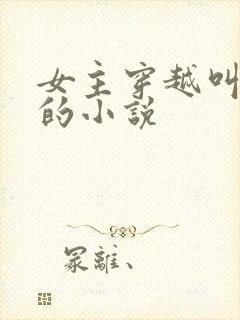 女主穿越叫
的小說
冢離、